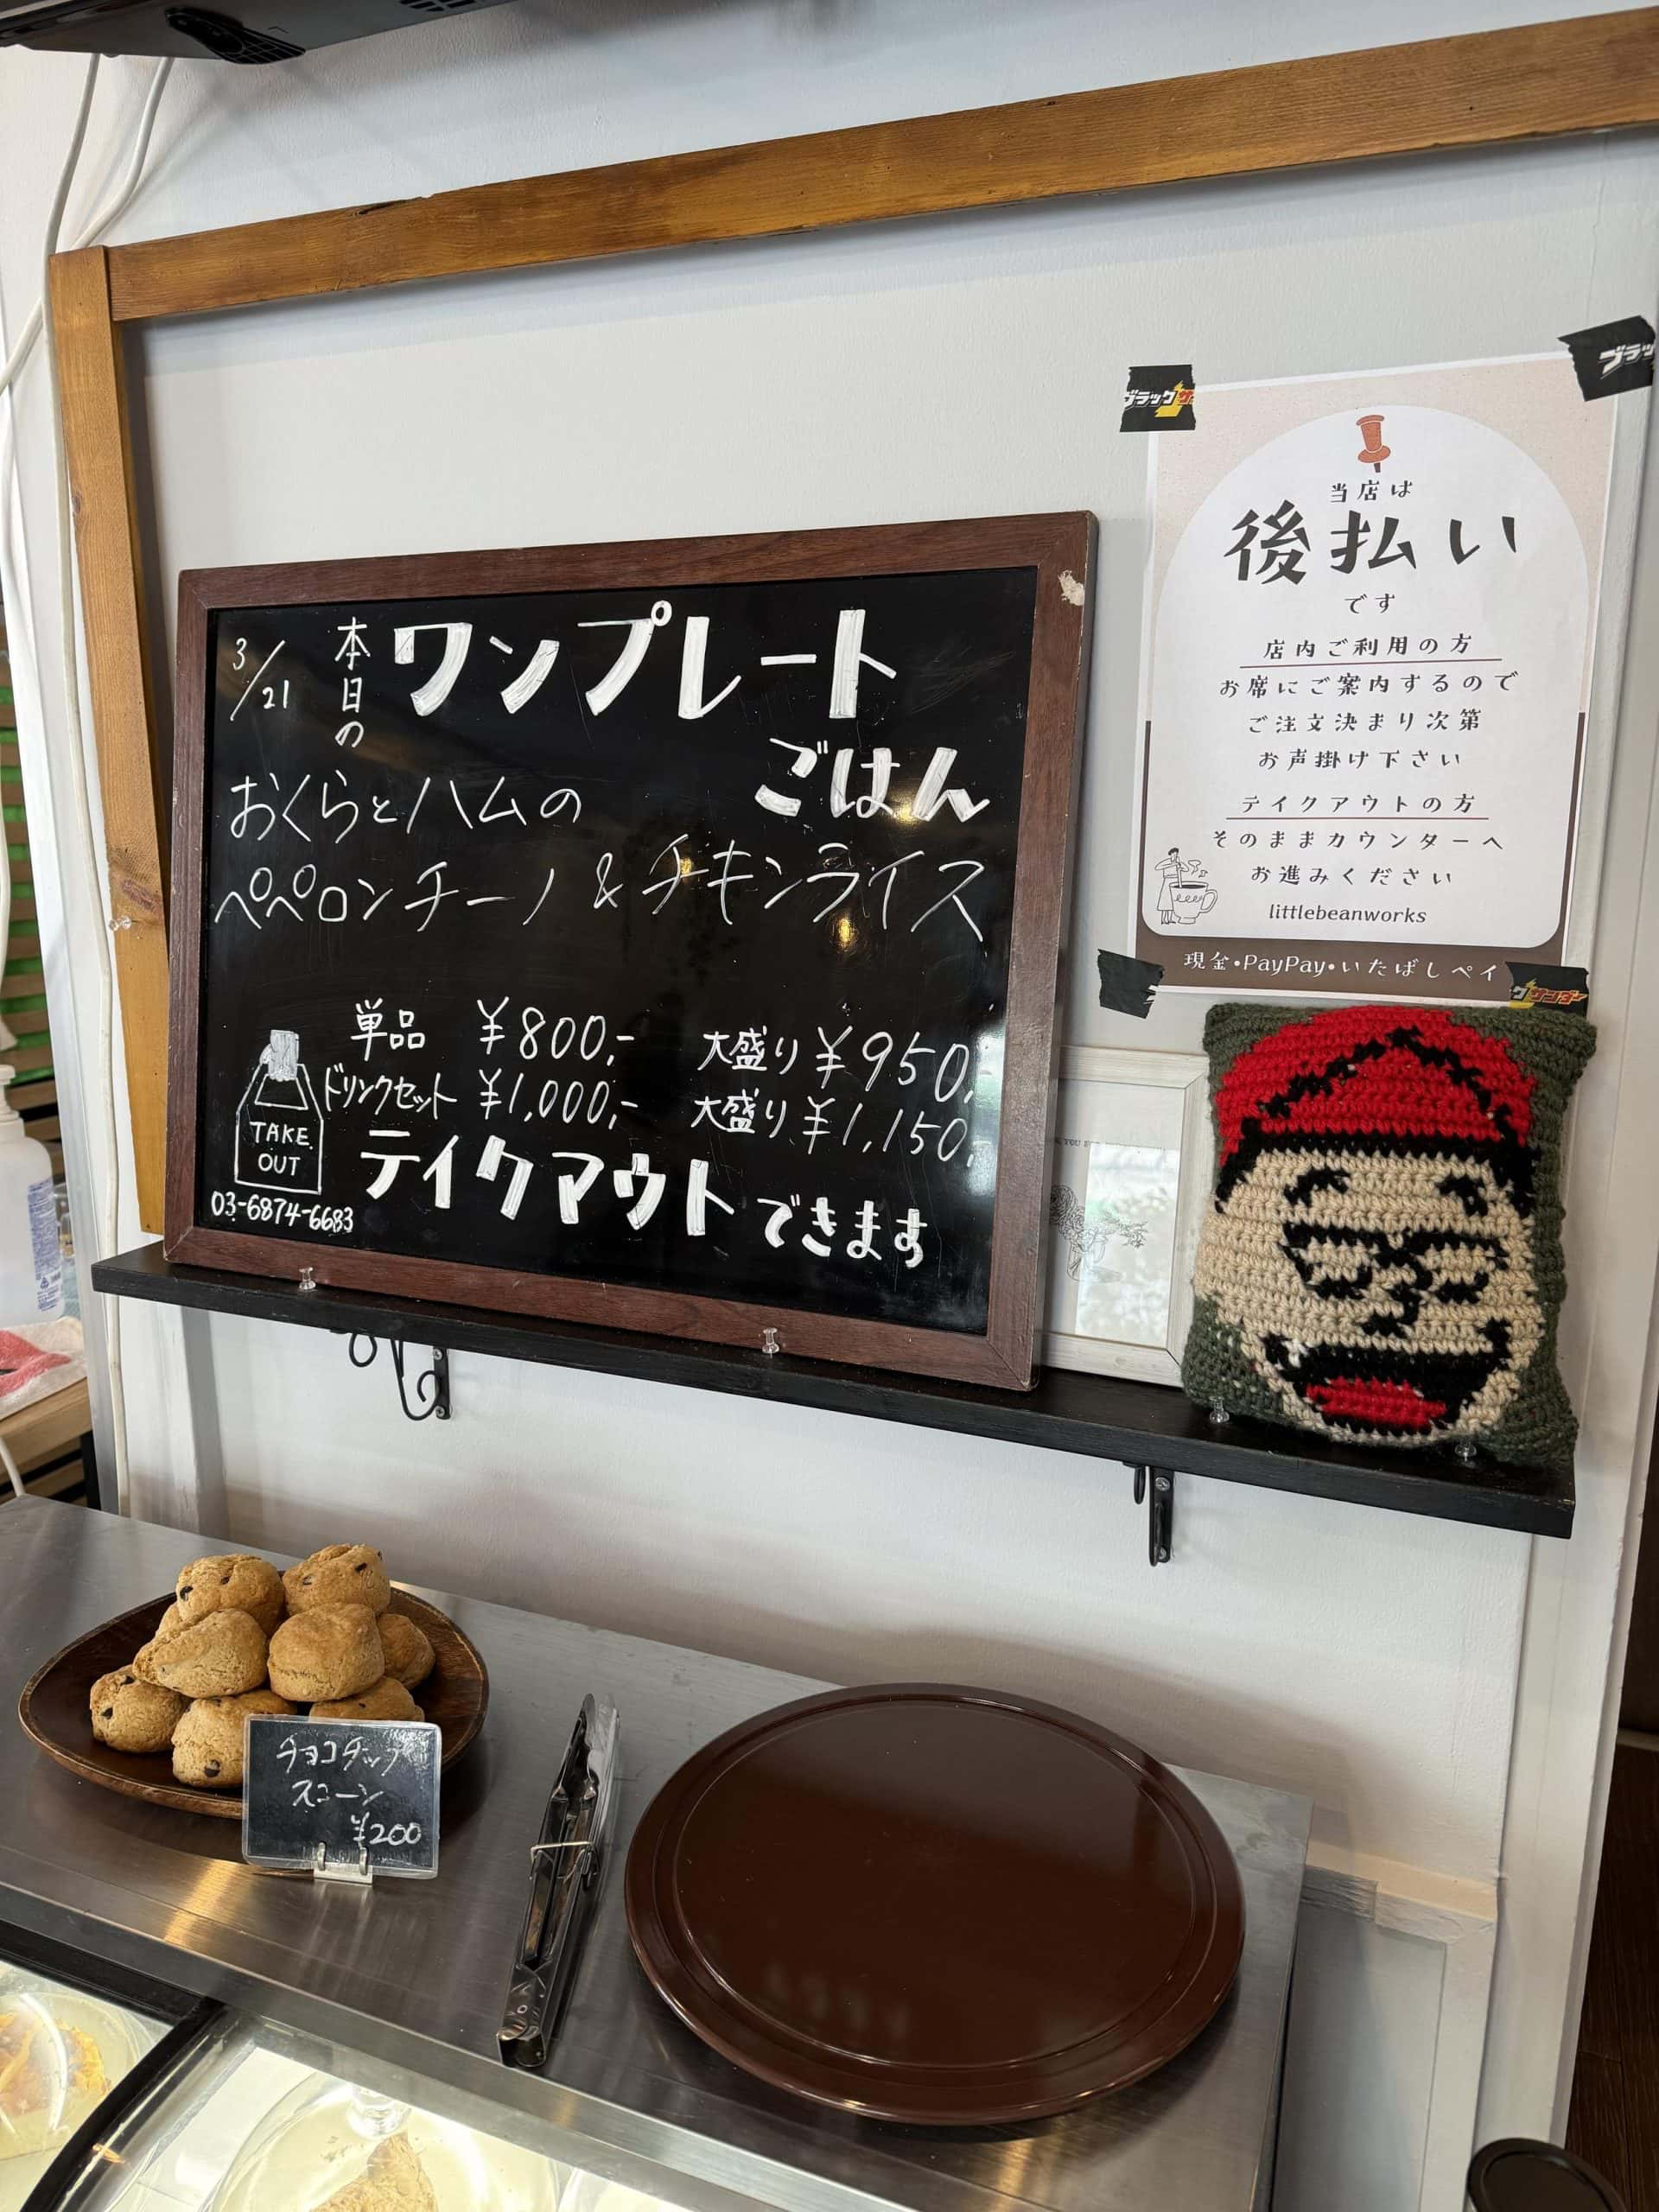 3/21
本日の
ワンプレート
ごはん
おくらとハムの
ペペロンチーノ&チキンライス
単品 ¥800,- 大盛り ¥950,
ドリンクセット ¥1,000,- 大盛り ¥1,150,
TAKE
OUT
テイクアウトできます
03-6874-6683
ブラックサ
ブラッ
当店は
後払い
です
店内ご利用の方
お席にご案内するので
ご注文決まり次第
お声掛け下さい
テイクアウトの方
そのままカウンターへ
お進みください
littlebeanworks
現金•PayPay•いたばしペイ
クサンダー
チョコチップ
スコーン
¥200